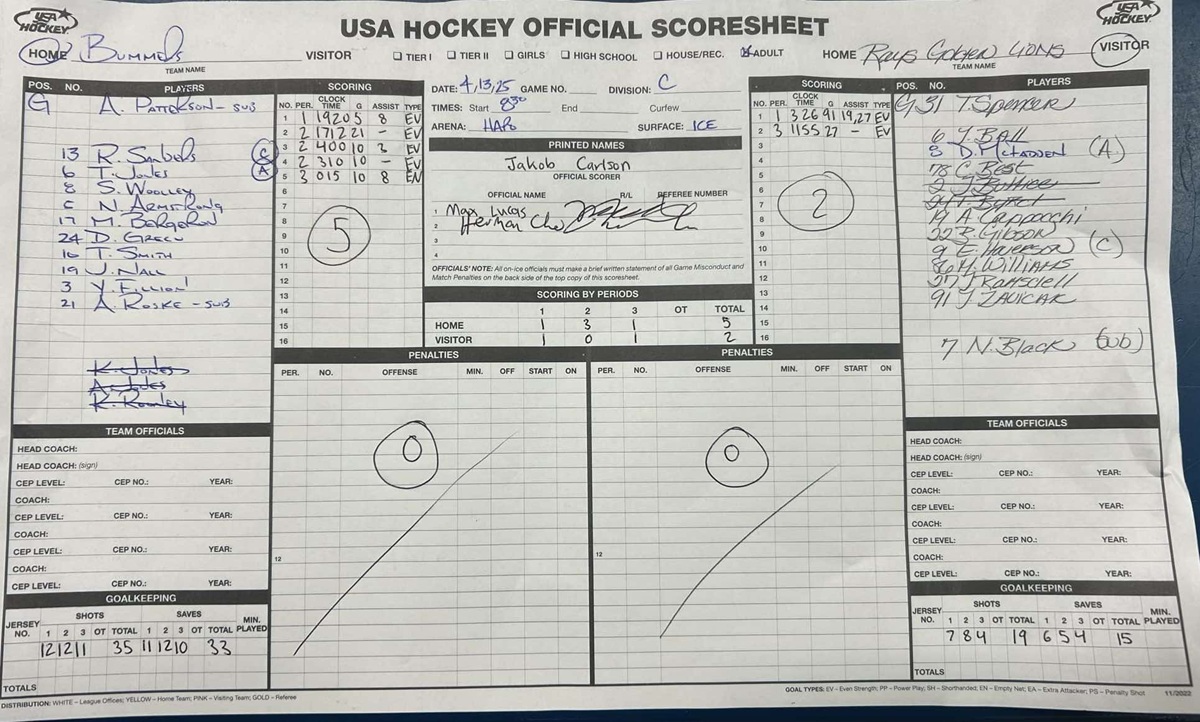 USA HOCKEY
USA HOCKEY OFFICIAL SCORESHEET
USA HOCKEY
HOME Bummers VISITOR ☐ TIER I ☐ TIER II ☐ GIRLS ☐ HIGH SCHOOL ☐ HOUSE/REC. ☒ ADULT HOME Rays Golden Lions VISITOR
TEAM NAME TEAM NAME
POS. NO. PLAYERS
G A. Patterson - sub
13 R. Sambels C
6 T. Jones A
8 S. Woolley
N. Armstrong
17 M. Bergeron
24 D. Green
16 T. Smith
19 J. Nall
3 Y. Fillion
21 A. Roske - sub
K. Jones
R. Rowley
SCORING
NO. PER. CLOCK TIME G ASSIST TYPE
1 1 1920 5 8 EV
2 2 1712 21 - EV
3 2 400 10 3 EV
4 2 310 10 - EV
5 3 015 10 8 EN
6
7
8
9
10
11
12
13
14
15
16
5
DATE: 4,13,25 GAME NO. DIVISION: C
TIMES: Start 8:30 End Curfew
ARENA: HARO SURFACE: ICE
PRINTED NAMES
Jakob Carlson
OFFICIAL SCORER
OFFICIAL NAME R/L REFEREE NUMBER
1 Max Lucas
2 Herman Cho
3
4
OFFICIALS' NOTE: All on-ice officials must make a brief written statement of all Game Misconduct and
Match Penalties on the back side of the top copy of this scoresheet.
SCORING BY PERIODS
1 2 3 OT TOTAL
HOME 1 3 1 5
VISITOR 1 0 1 2
SCORING
NO. PER. CLOCK TIME G ASSIST TYPE
1 1 326 91 19,27 EV
2 3 1155 27 - EV
3
4
5
6
7
8
9
10
11
12
13
14
15
16
2
POS. NO. PLAYERS
G 31 T. Spencer
6 J. Ball
8 D. McFadden (A)
78 C. Best
19 A. Cappocchi
22 R. Gibson
9 E. Haverson (C)
86 H. Williams
27 J Ramsdell
91 J. Zavicar
7 N. Black (sub)
PENALTIES
PER. NO. OFFENSE MIN. OFF START ON
0
12
PENALTIES
PER. NO. OFFENSE MIN. OFF START ON
0
12
TEAM OFFICIALS
HEAD COACH:
HEAD COACH: (sign)
CEP LEVEL: CEP NO.: YEAR:
COACH:
CEP LEVEL: CEP NO.: YEAR:
COACH:
CEP LEVEL: CEP NO.: YEAR:
COACH:
CEP LEVEL: CEP NO.: YEAR:
GOALKEEPING
SHOTS SAVES
JERSEY NO. 1 2 3 OT TOTAL 1 2 3 OT TOTAL MIN. PLAYED
12 12 11 35 11 12 10 33
TOTALS
TEAM OFFICIALS
HEAD COACH:
HEAD COACH: (sign)
CEP LEVEL: CEP NO.: YEAR:
COACH:
CEP LEVEL: CEP NO.: YEAR:
COACH:
CEP LEVEL: CEP NO.: YEAR:
COACH:
CEP LEVEL: CEP NO.: YEAR:
GOALKEEPING
SHOTS SAVES
JERSEY NO. 1 2 3 OT TOTAL 1 2 3 OT TOTAL MIN. PLAYED
7 8 4 19 6 5 4 15
TOTALS
DISTRIBUTION: WHITE – League Offices; YELLOW – Home Team; PINK – Visiting Team; GOLD – Referee
GOAL TYPES: EV – Even Strength; PP – Power Play; SH – Shorthanded; EN – Empty Net; EA – Extra Attacker; PS – Penalty Shot 11/2022